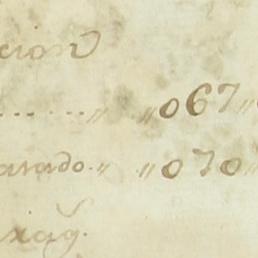 cion
...... „ „067„
arado.„ „070„
xag.